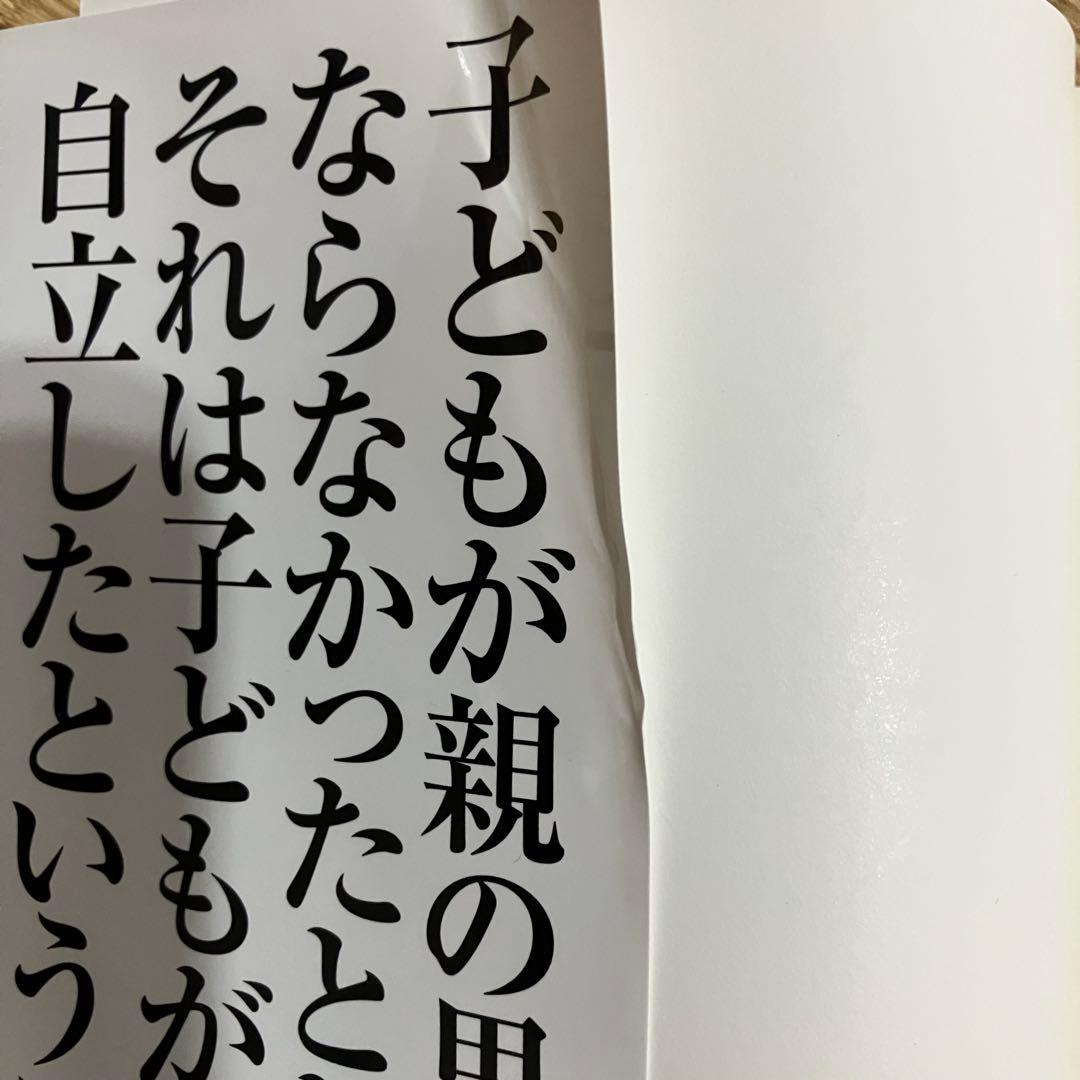 子どもが親の思
ならなかったと
それは子どもが
自立したという